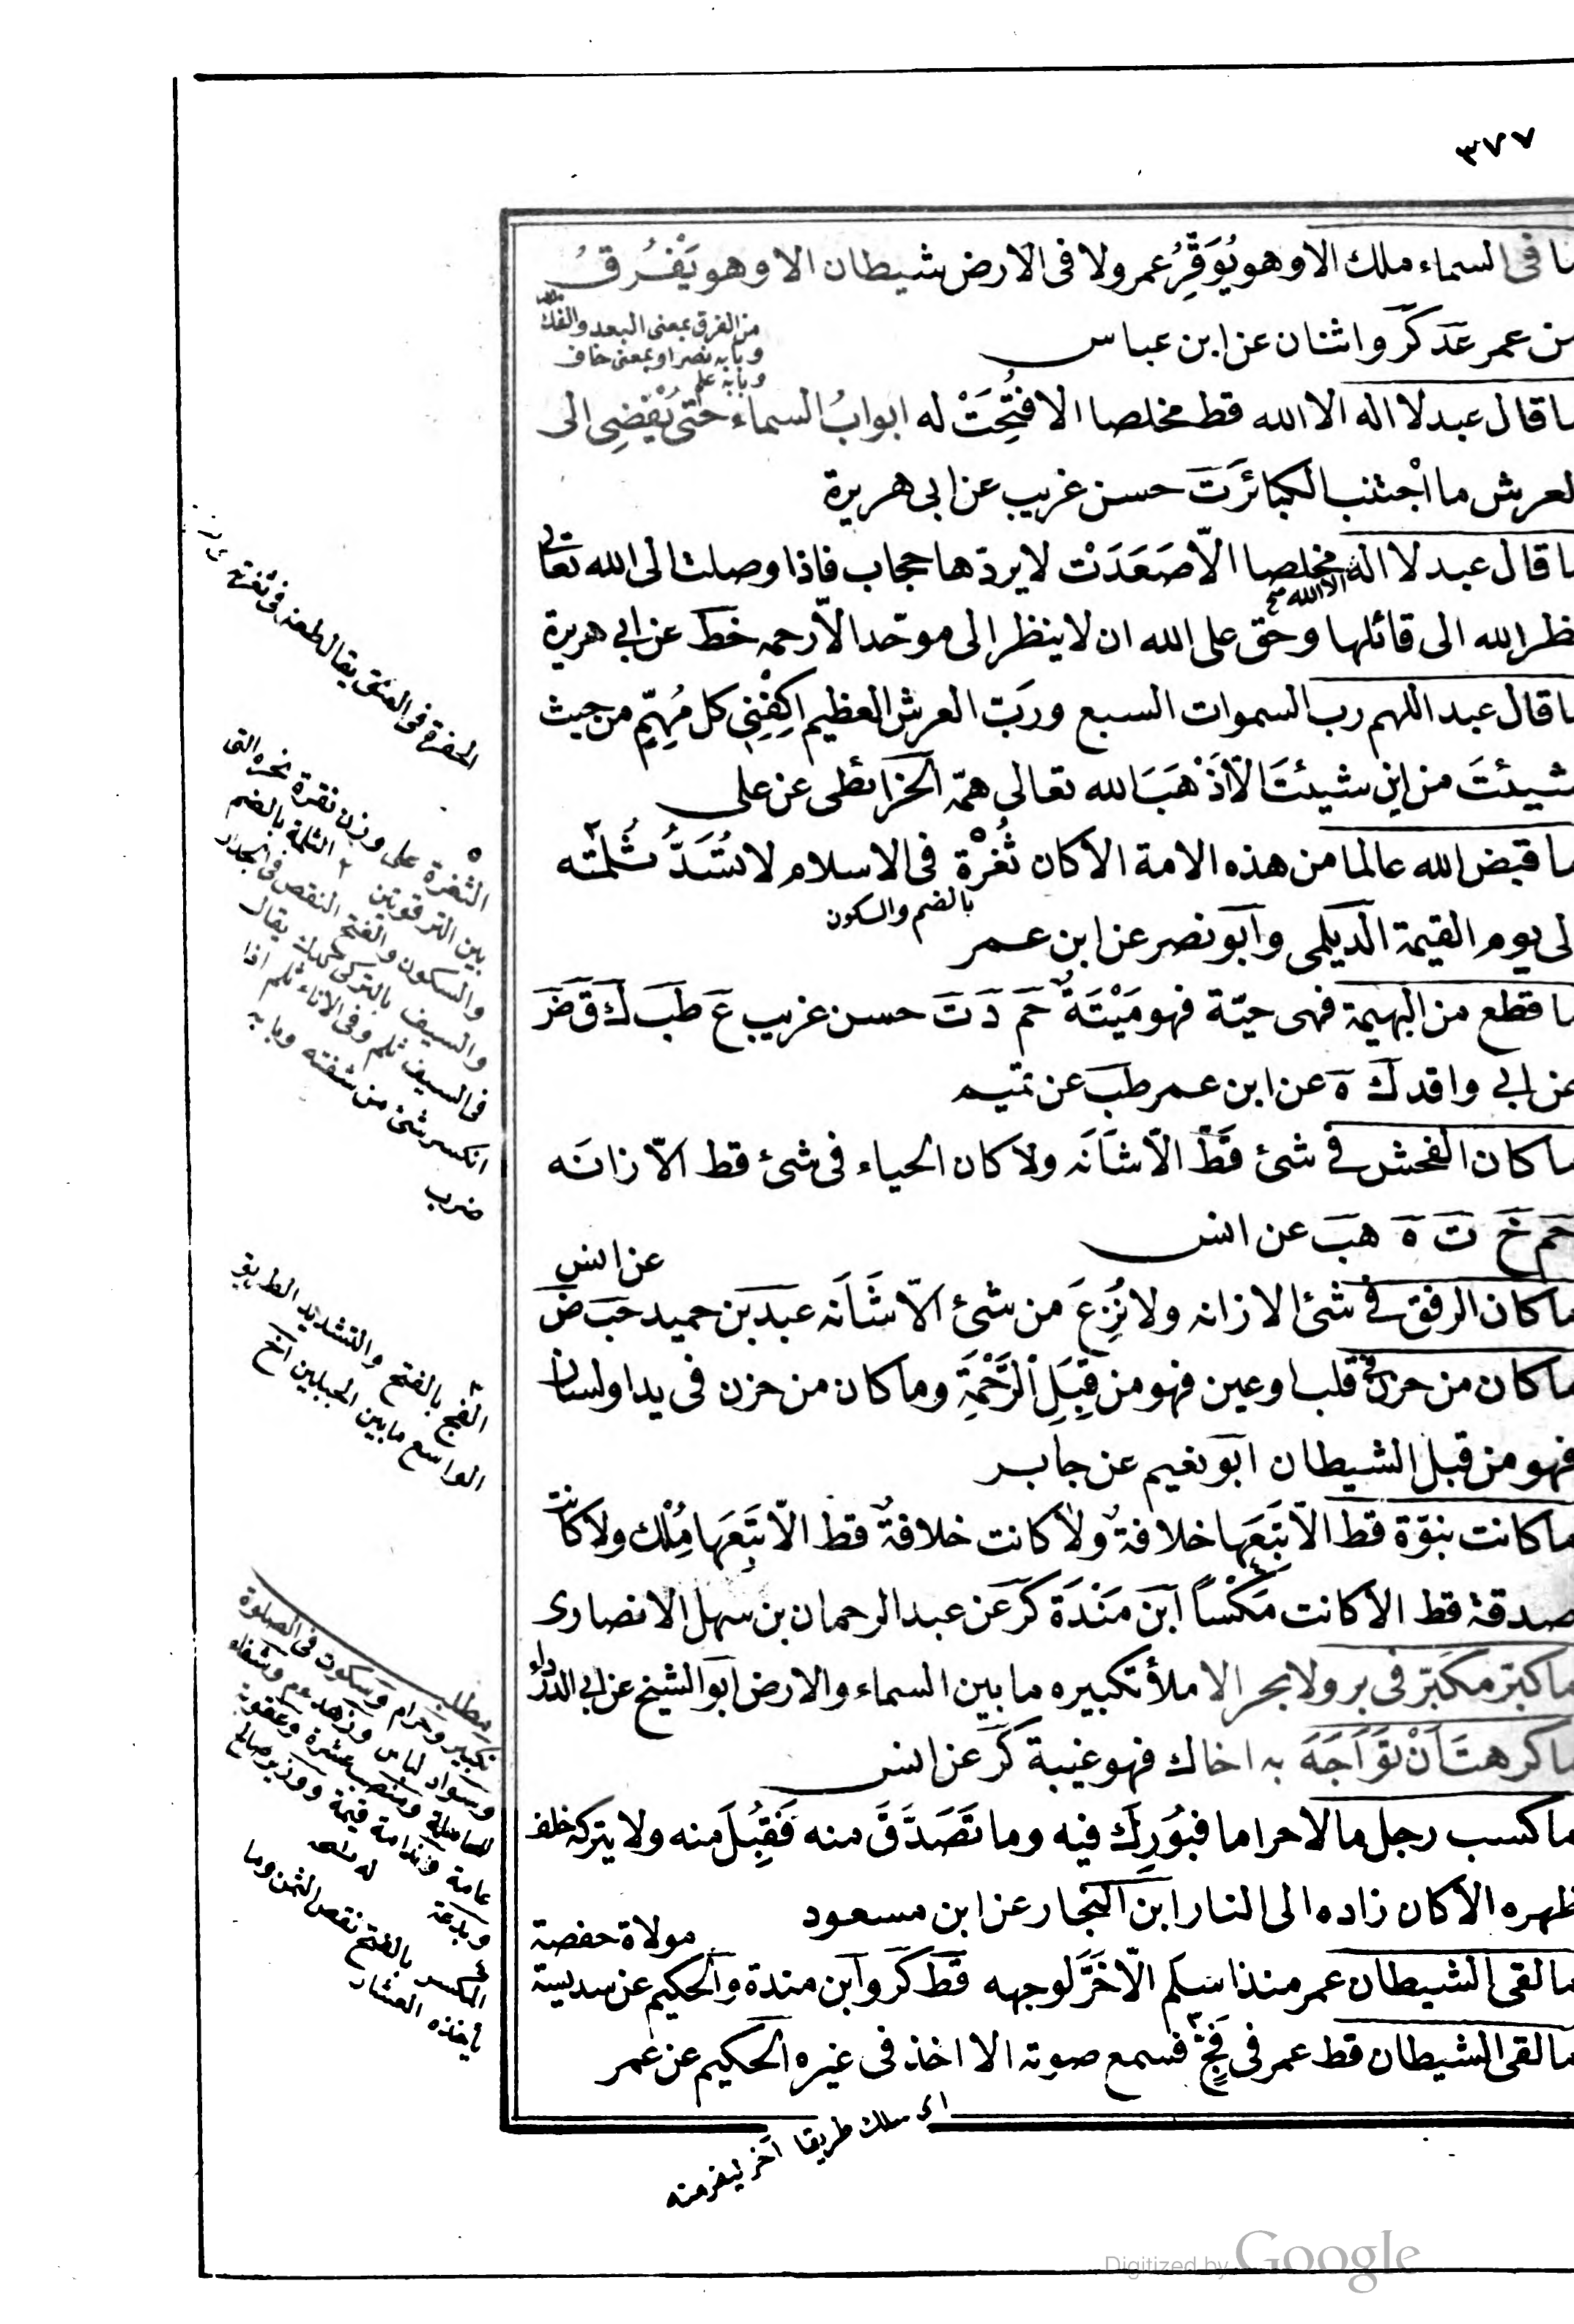 ٣٧٧
ما فى السماء ملك الا وهو يُوَقِّرُ عمر ولا فى الارض شيطان الا وهو يَفْرُقُ
من عمر عَدَ كَرَ واثنان عن ابن عباس
من الفرق بمعنى البعد والفك
وبابه نصر او بمعنى خاف
وبابه علم
ما قال عبد لا اله الا الله قط مخلصا الا فُتِّحَتْ له ابوابُ السماء حتى يُفْضِى الى
لعرش ما اجْتنب الكبائر تَ حسن غريب عن ابى هريرة
ما قال عبد لا اله الا الله صح مخلصا الّا صَعَدَتْ لا يردّها حجاب فاذا وصلت الى الله تعالى
نظر الله الى قائلها وحق على الله ان لا ينظر الى موحّد الّا رحمه خط عن ابى هريرة
ما قال عبد اللهم رب السموات السبع وربّ العرش العظيم اكِفْنِى كل مُهِمٍّ من حيث
شيئتَ من اين شيئتَ الّا اَذْهَبَ الله تعالى همّه الخرائطى عن على
ما قبض الله عالما من هذه الامة الا كان ثُغْرة فى الاسلام لا تُسَدُّ ثُلمته
بالضم والسكون
لى يوم القيمة الديلمى وابو نصر عن ابن عمر
ما قطع من البهيمة فهى حيّة فهو مَيْتَةٌ حَم دَ تَ حسن غريب عَ طَب كَ قَ ضَ
عن ابى واقد كَ هَ عن ابن عمر طب عن تميم
ما كان الفحش فى شئ قَطّ الّا شَانَه ولا كان الحياء فى شئ قط الّا زانَه
حَم خَ تَ هَ هَب عن انس
عن انس
ما كان الرفق فى شئ الا زانه ولا نُزِعَ من شئ الّا شَانَه عبد بن حميد حَب ضَ
ما كان من حزن فى قلب او عين فهو من قِبَلِ الرَّحْمَةِ وما كان من حزن فى يد او لسان
فهو من قبل الشيطان ابو نعيم عن جابر
ما كانت نبوّة قط الّا تَبَعَها خلافةٌ ولا كانت خلافةٌ قط الّا تَبَعَها مُلْك ولا كانت
صدقة قط الا كانت مَكْسًا ابن مَنْدَة كَر عن عبد الرحمان بن سهل الانصارى
ما كبّر مكبّر فى بر ولا بحر الا ملأ تكبيره ما بين السماء والارض ابو الشيخ عن ابى الدرداء
ما كرهت اَنْ تُوَاجَهَ به اخاك فهو غيبة كَر عن انس
ما كسب رجل مالا حراما فبُورِكَ فيه وما تَصَدَّقَ منه فَقُبِلَ منه ولا يتركه خلف
ظهره الا كان زاده الى النار ابن النجار عن ابن مسعود
مولاة حفصة
ما لقى الشيطان عمر منذ اسلم الّا خَرَّ لوجهه قَط كَر وابن مندة والحكيم عن سديسة
ما لقى الشيطان قط عمر فى فَجٍّ فسمع صوته الا اخذ فى غيره الحكيم عن عمر
اى سلك طريقا آخر ليفر منه
الحفرة فى العنق يقال طعنه فى ثغرته
الثغرة على وزن نقرة نحره التى
بين الترقوتين ٢ الثلمة بالضم
والسكون والفتح النقص فى الجدار
والسيف بالتركى كديك يقال
فى السيف ثلم وفى الاناء ثلم اذا
انكسر شئ من شفته وبابه
ضرب
الفج بالفتح والتشديد الطريق
الواسع ما بين الجبلين آخ
مطلب
تكبير وحرام وسكون فى الصلوة
المكس بالفتح نقص الثمن وما
يأخذه العشار
Digitized by Google